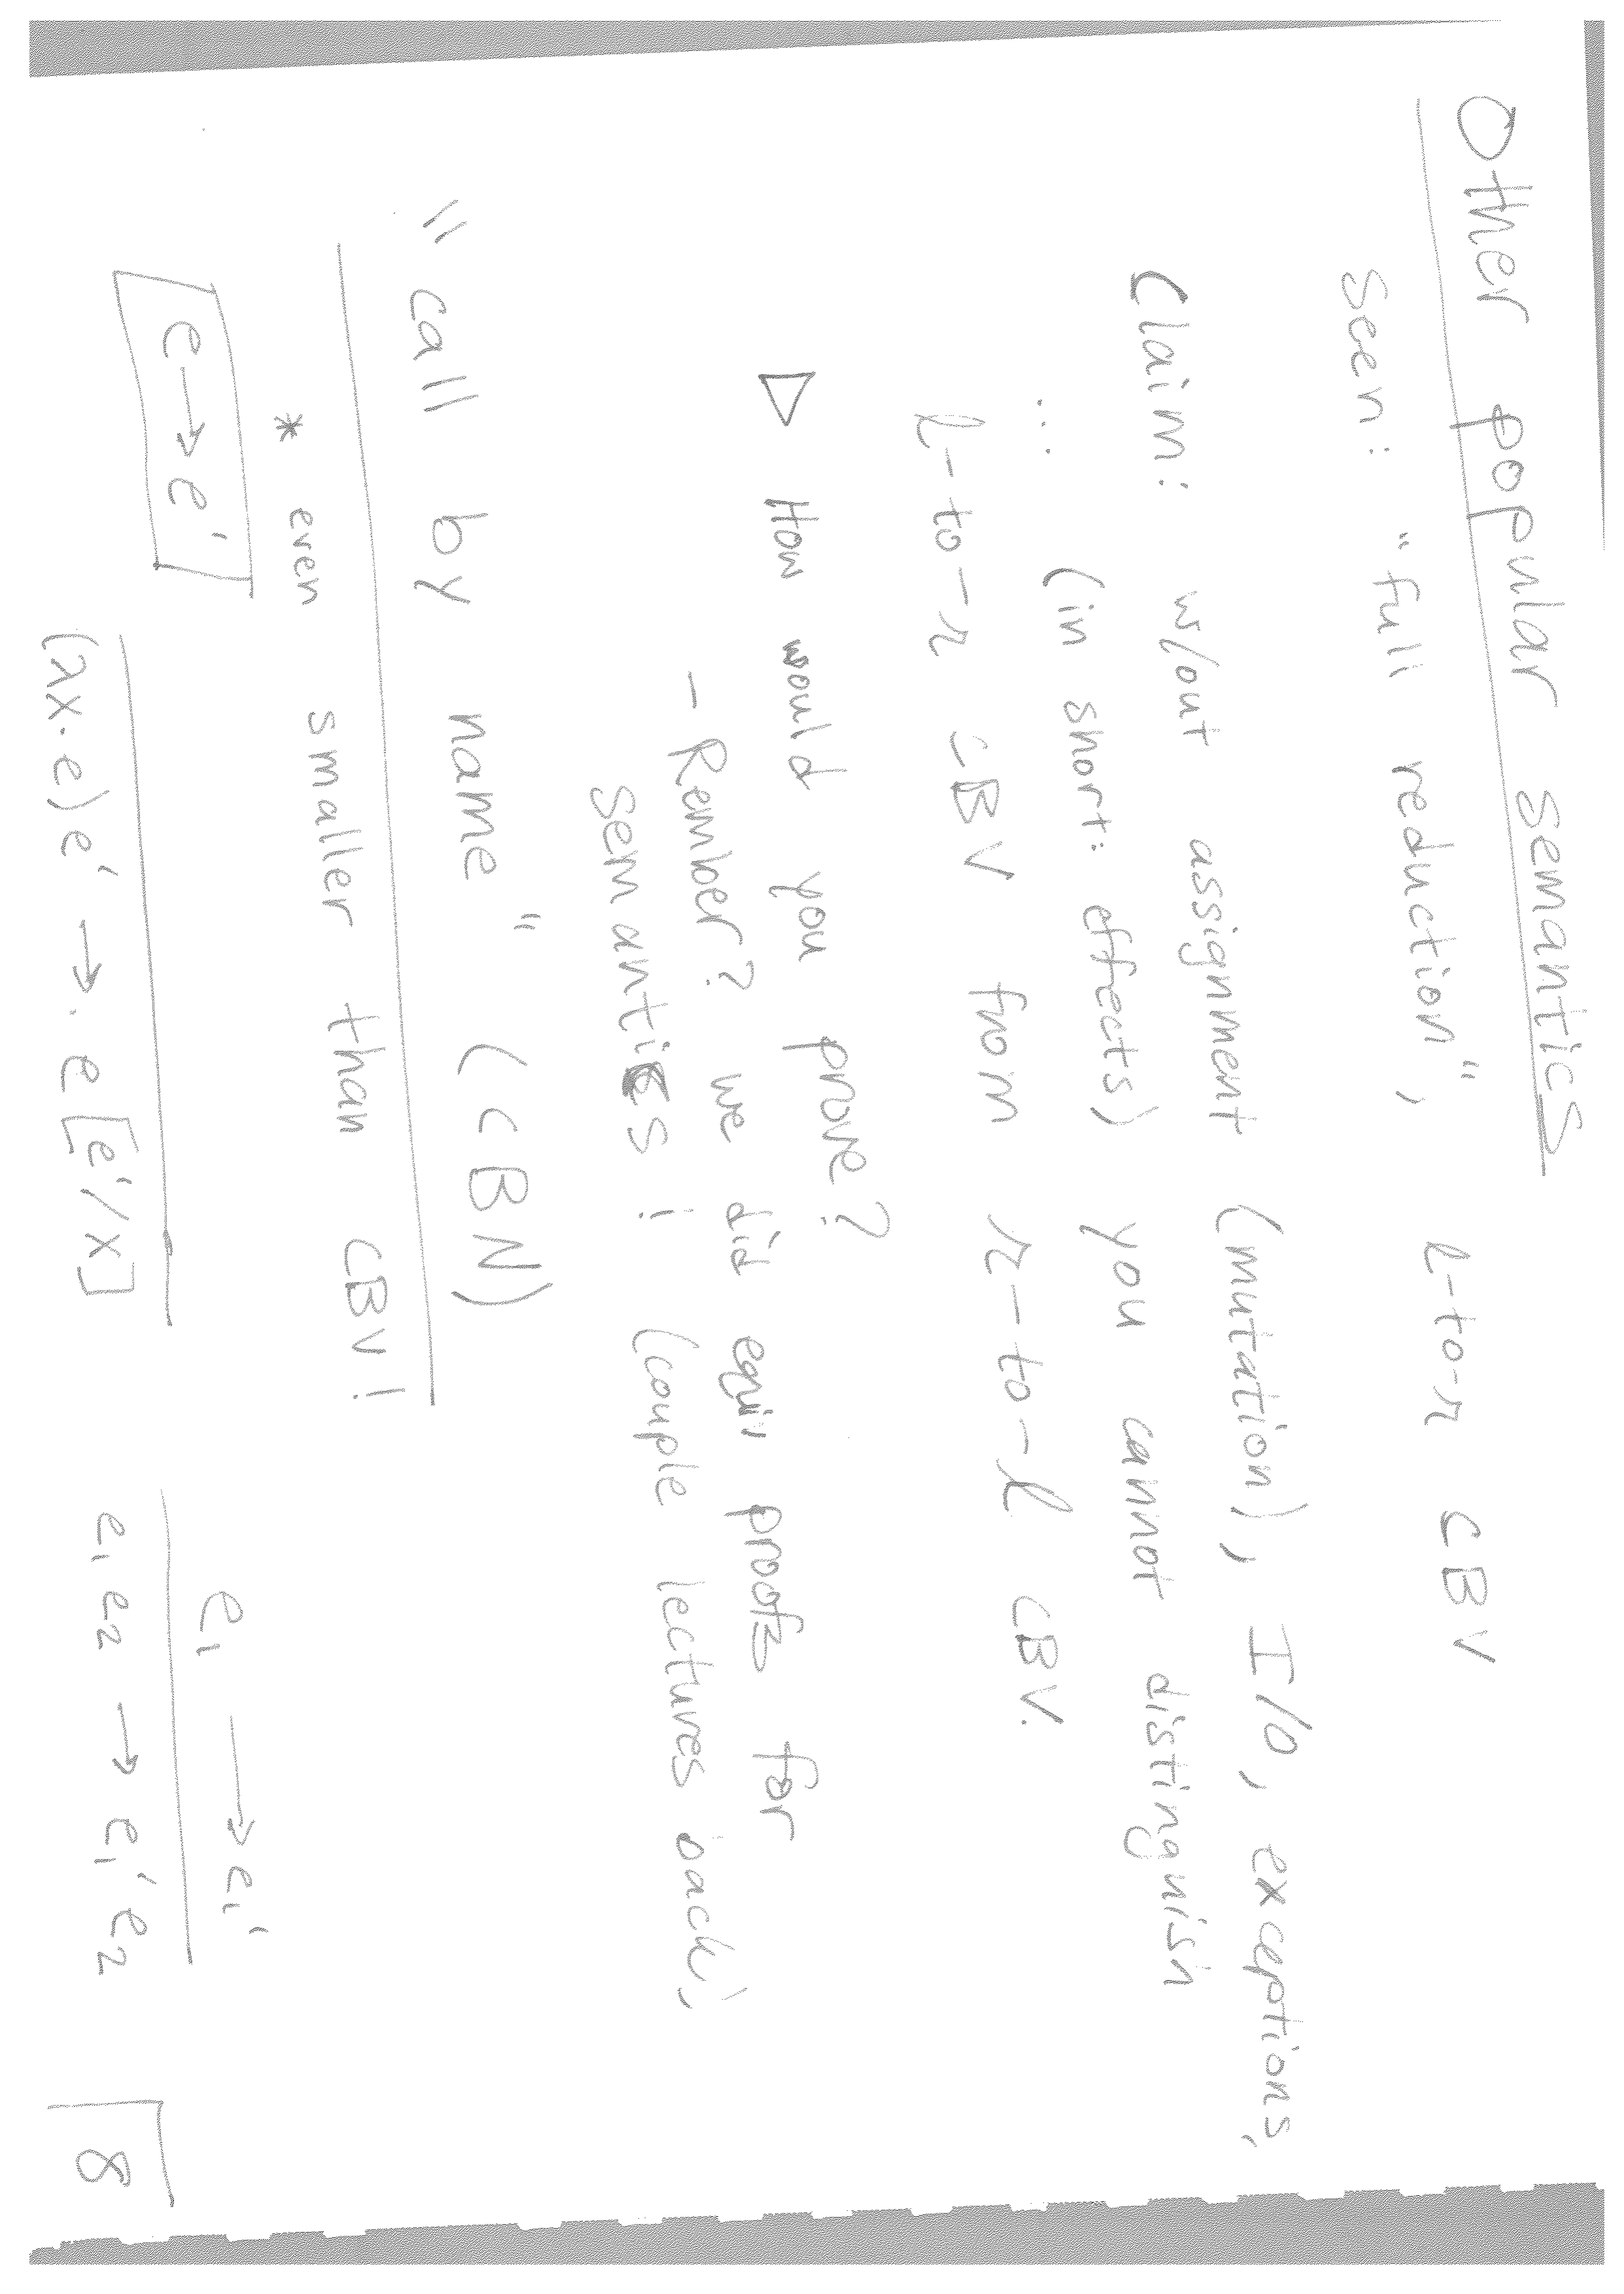 Other popular semantics
Seen: "full reduction", l-to-r CBV
Claim: w/out assignment (mutation), I/O, exceptions,
... (in short: effects) you cannot distinguish
l-to-r CBV from r-to-l CBV.
▷ How would you prove?
- Rember? we did equiv proofs for
semantics! (couple lectures back)
"call by name" (CBN)
* even smaller than CBV!
e → e'
(λx.e) e' → e[e'/x]
e₁ → e₁'
e₁ e₂ → e₁' e₂
8